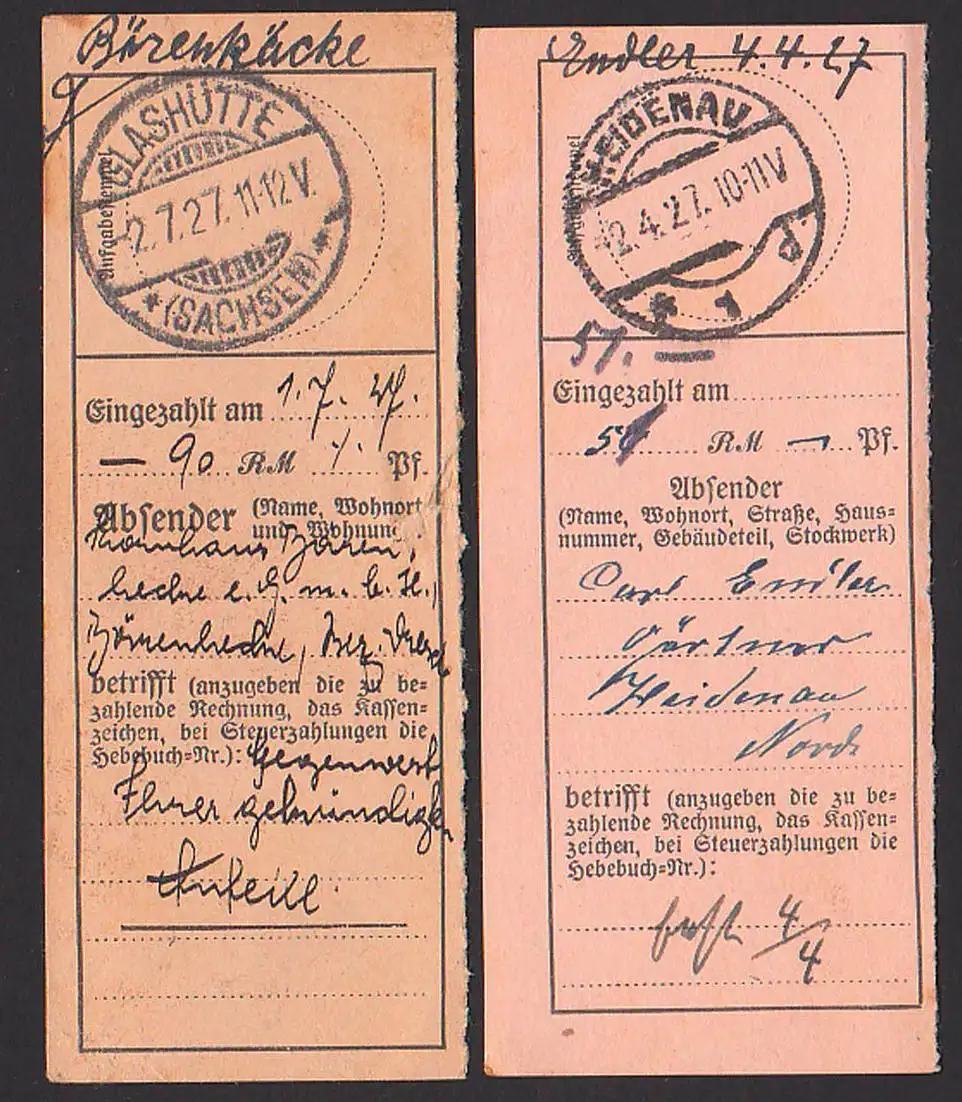 Bärenhäcke
GLASHÜTTE
-2.7.27.11-12V.
* (SACHSEN) *
Aufgabestempel
Eingezahlt am 1.7.27.
— 90 RM Pf.
Absender (Name, Wohnort
und Wohnung)
Kornhaus Bären-
hecke e. G. m. b. H.,
Bärenhecke, Bez. Dresd.
betrifft (anzugeben die zu be=
zahlende Rechnung, das Kassen=
zeichen, bei Steuerzahlungen die
Hebebuch=Nr.): Gegenwert
Ihrer gekündigten
Anteile.
Endler 4.4.27
HEIDENAU
-2.4.27.10-11V
* 1 P
Aufgabestempel
51. —
Eingezahlt am
51 RM — Pf.
Absender
(Name, Wohnort, Straße, Haus=
nummer, Gebäudeteil, Stockwerk)
Carl Endler
Gärtner
Heidenau
Nord
betrifft (anzugeben die zu be=
zahlende Rechnung, das Kassen=
zeichen, bei Steuerzahlungen die
Hebebuch=Nr.):
4/4